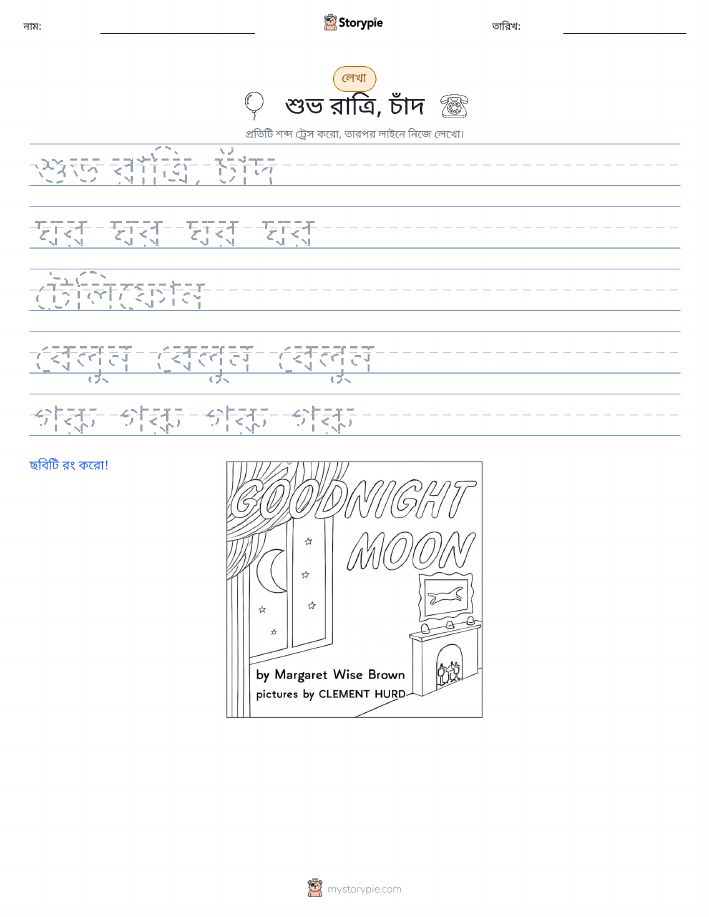 নাম:
Storypie
তারিখ:
লেখা
শুভ রাত্রি, চাঁদ
প্রতিটি শব্দ ট্রেস করো, তারপর লাইনে নিজে লেখো।
শুভ রাত্রি, চাঁদ
ঘর ঘর ঘর ঘর
টেলিফোন
বেলুন বেলুন বেলুন
গরু গরু গরু গরু
ছবিটি রং করো!
GOODNIGHT
MOON
by Margaret Wise Brown
pictures by CLEMENT HURD
mystorypie.com